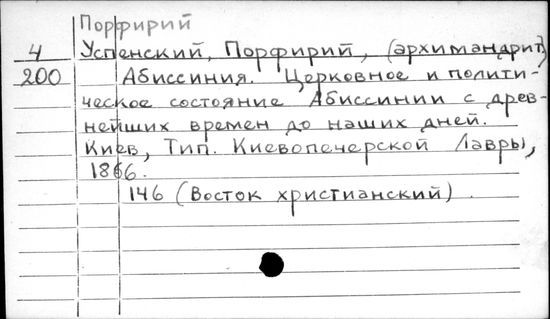 Порфирий
4 Успенский, Порфирий, (архимандрит)
200 Абиссиния. Церковное и полити-
ческое состояние Абиссинии с древ-
нейших времен до наших дней.
Киев, Тип. Киевопечерской Лавры,
1866.
146 (Восток христианский).